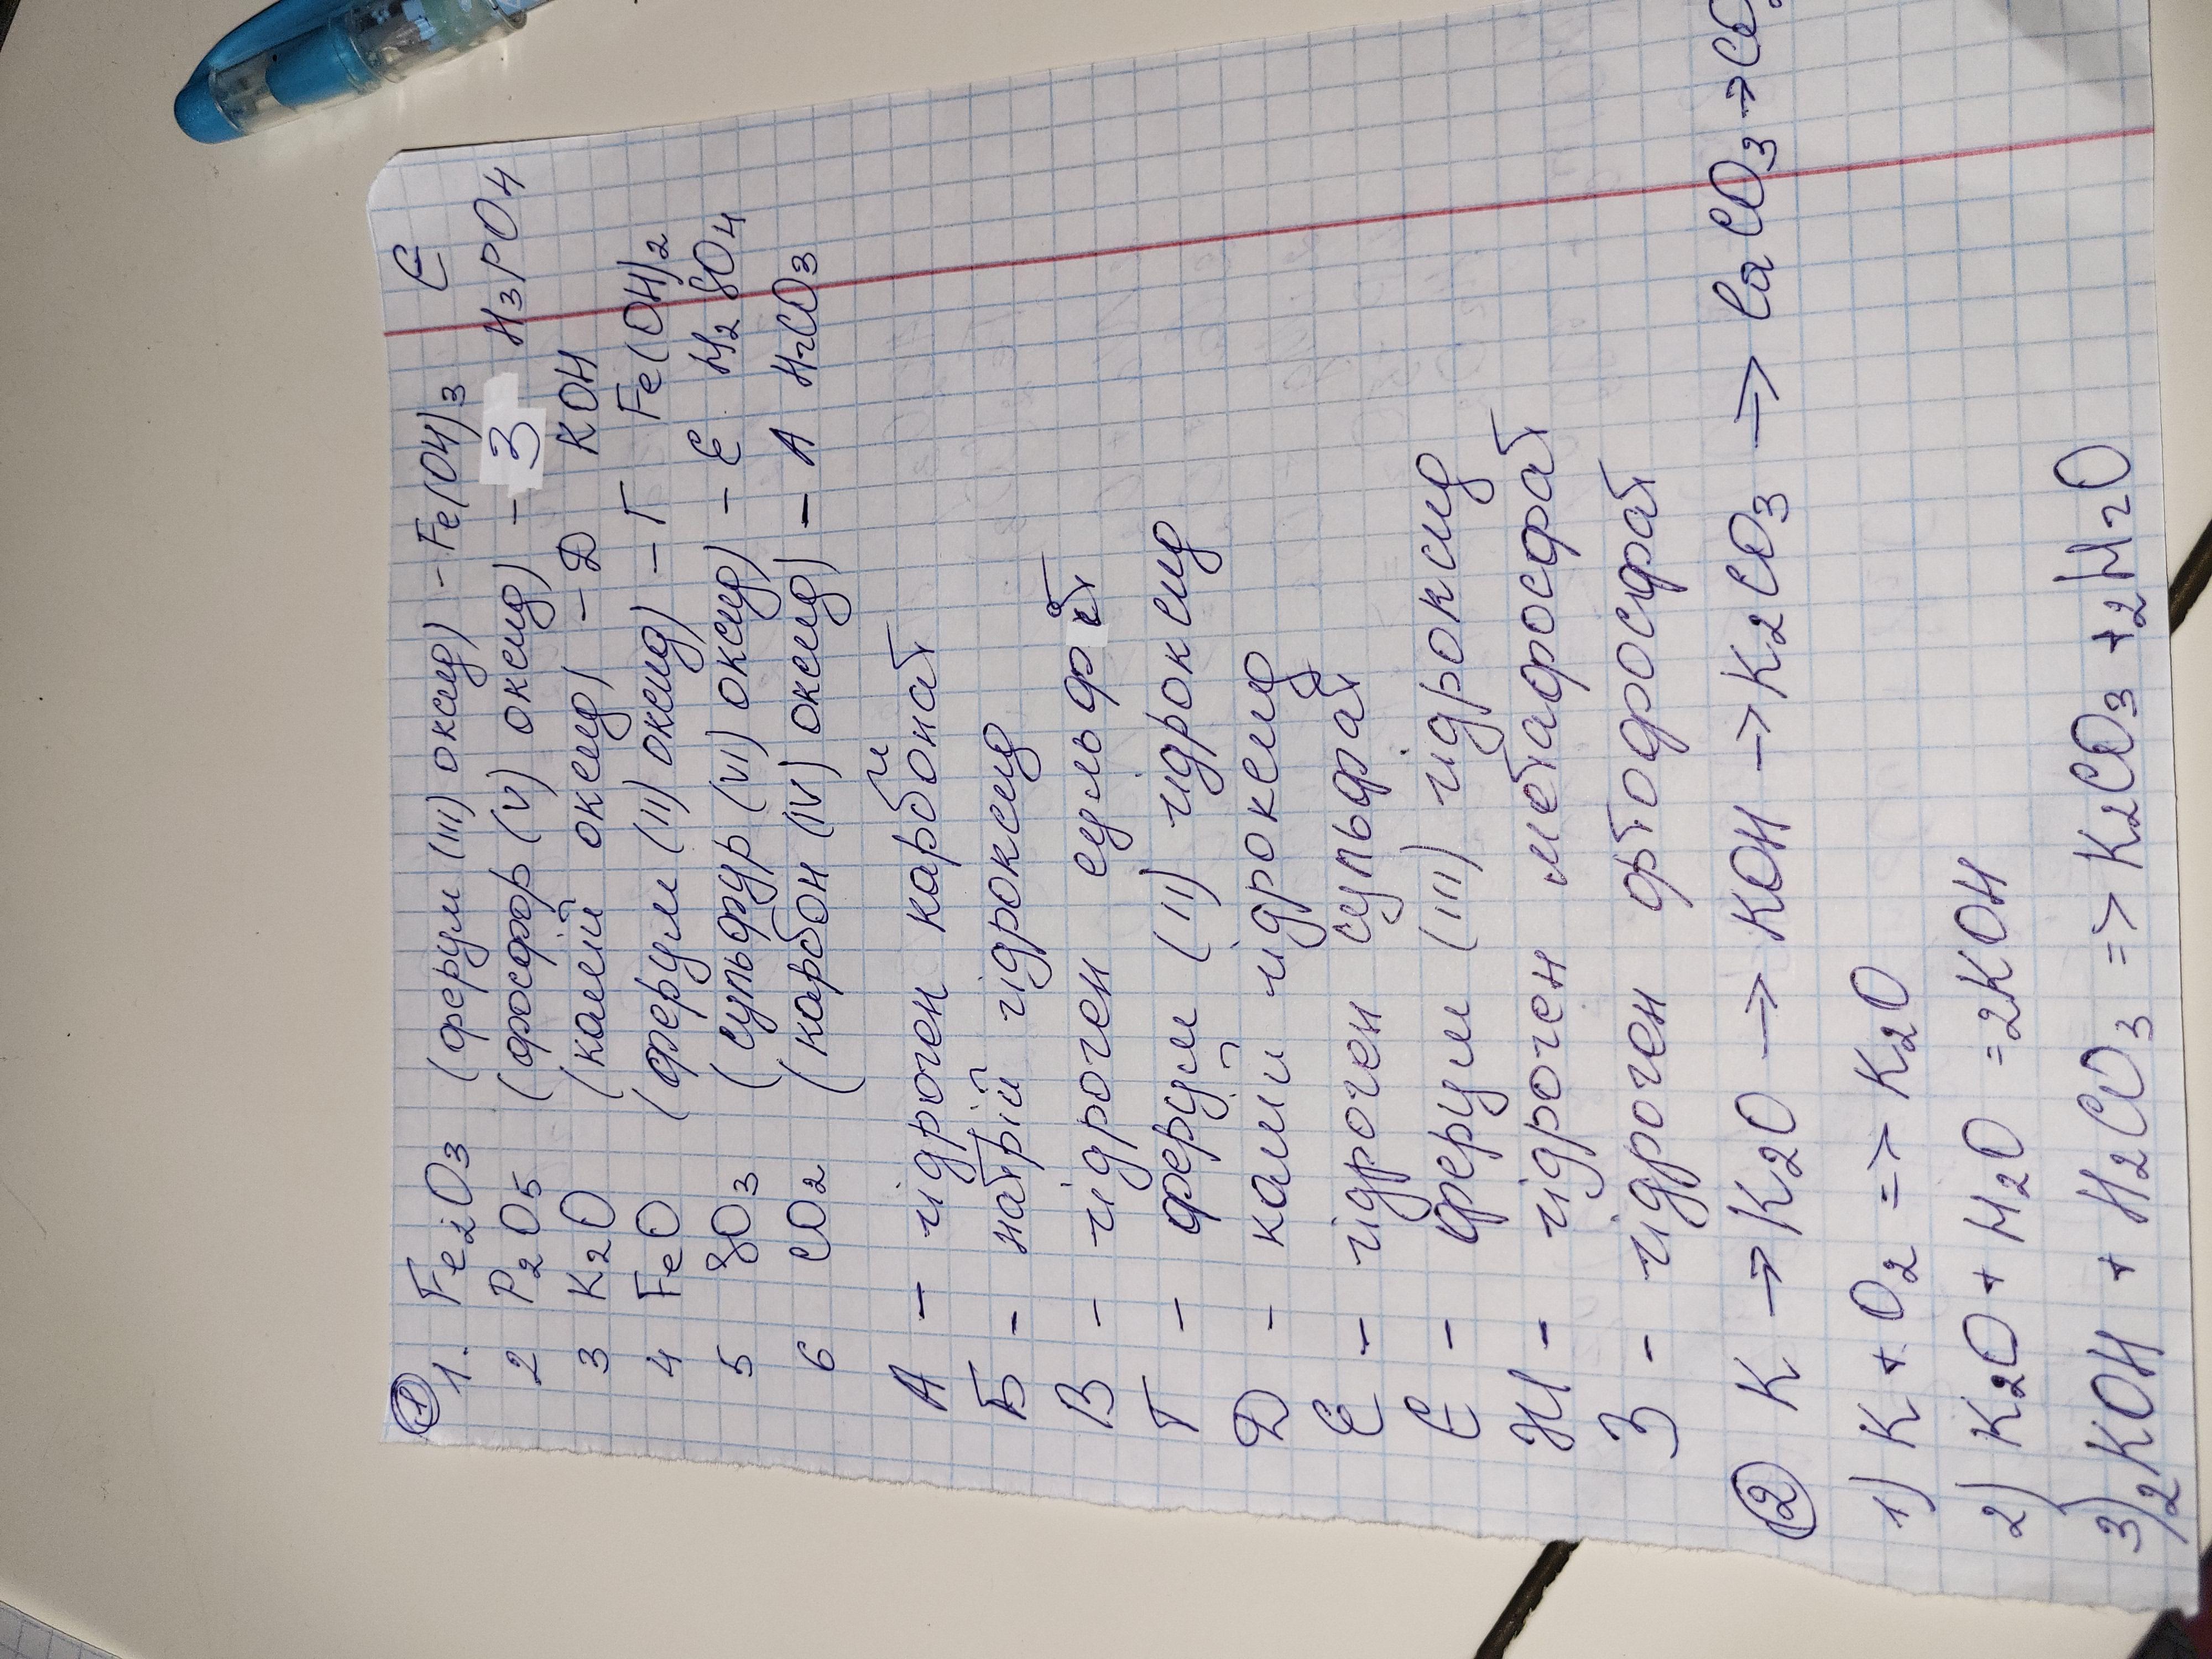 ①
1. Fe2O3 (ферум (III) оксид) - Fe(OH)3 Є
2 P2O5 (фосфор (V) оксид) - З H3PO4
3 K2O (калій оксид) - Д KOH
4 FeO (ферум (II) оксид) - Г Fe(OH)2
5 SO3 (сульфур (VI) оксид) - Е H2SO4
6 CO2 (карбон (IV) оксид) - А H2CO3
А - гідроген карбонат
Б - натрій гідроксид
В - гідроген сульфіт
Г - ферум (II) гідроксид
Д - калій гідроксид
Е - гідроген сульфат
Є - ферум (III) гідроксид
Ж - гідроген метафосфат
З - гідроген ортофосфат
② K → K2O → KOH → K2CO3 → CaCO3 → CO2
1) K + O2 => K2O
2) K2O + H2O = 2KOH
3) 2KOH + H2CO3 => K2CO3 + 2H2O